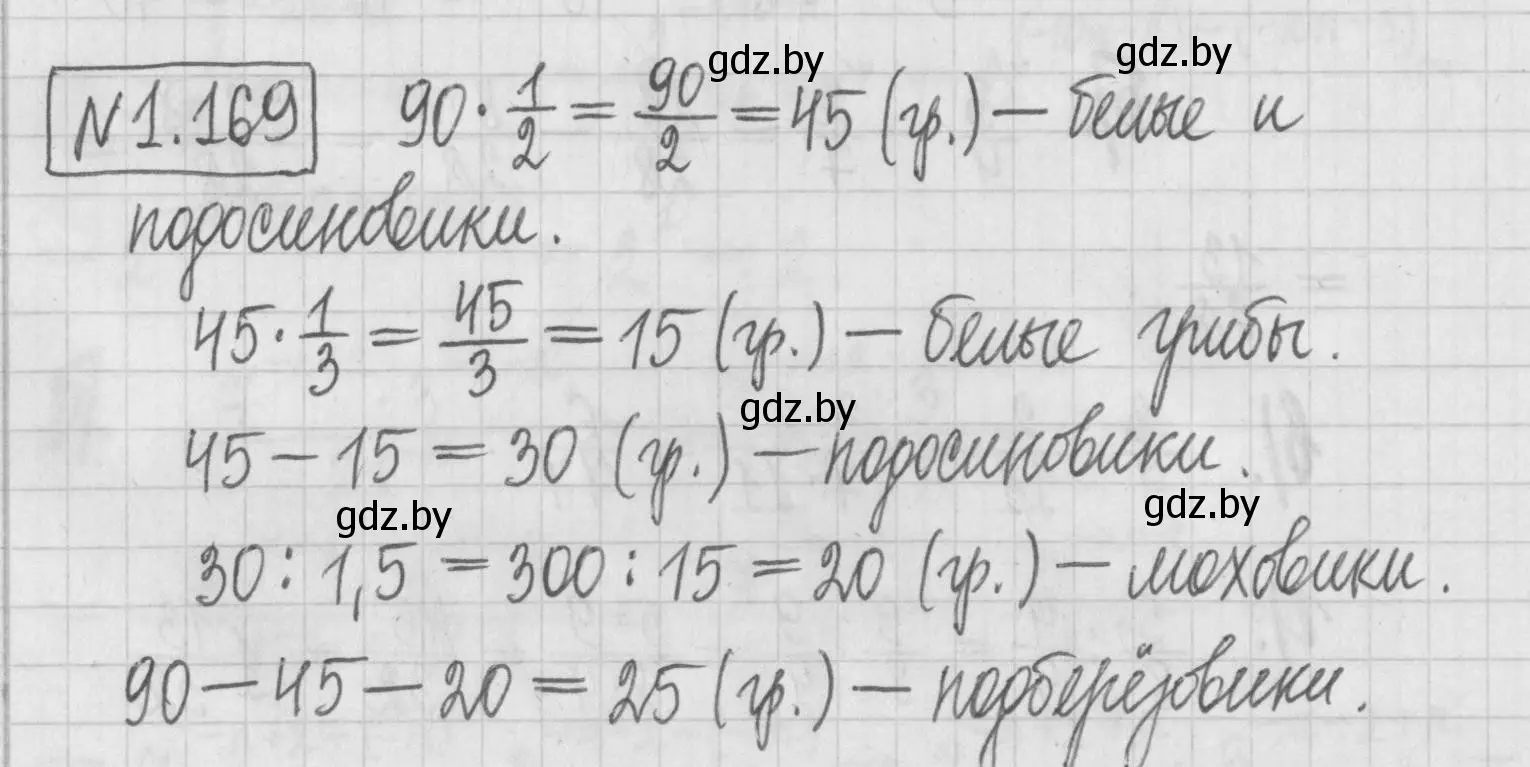 gdz.by gdz.by
№1.169 90 · 1/2 = 90/2 = 45 (гр.) — белые и
подосиновики.
45 · 1/3 = 45/3 = 15 (гр.) — белые грибы.
gdz.by
45 − 15 = 30 (гр.) — подосиновики.
gdz.by gdz.by
30 : 1,5 = 300 : 15 = 20 (гр.) — моховики.
90 − 45 − 20 = 25 (гр.) — подберёзовики.